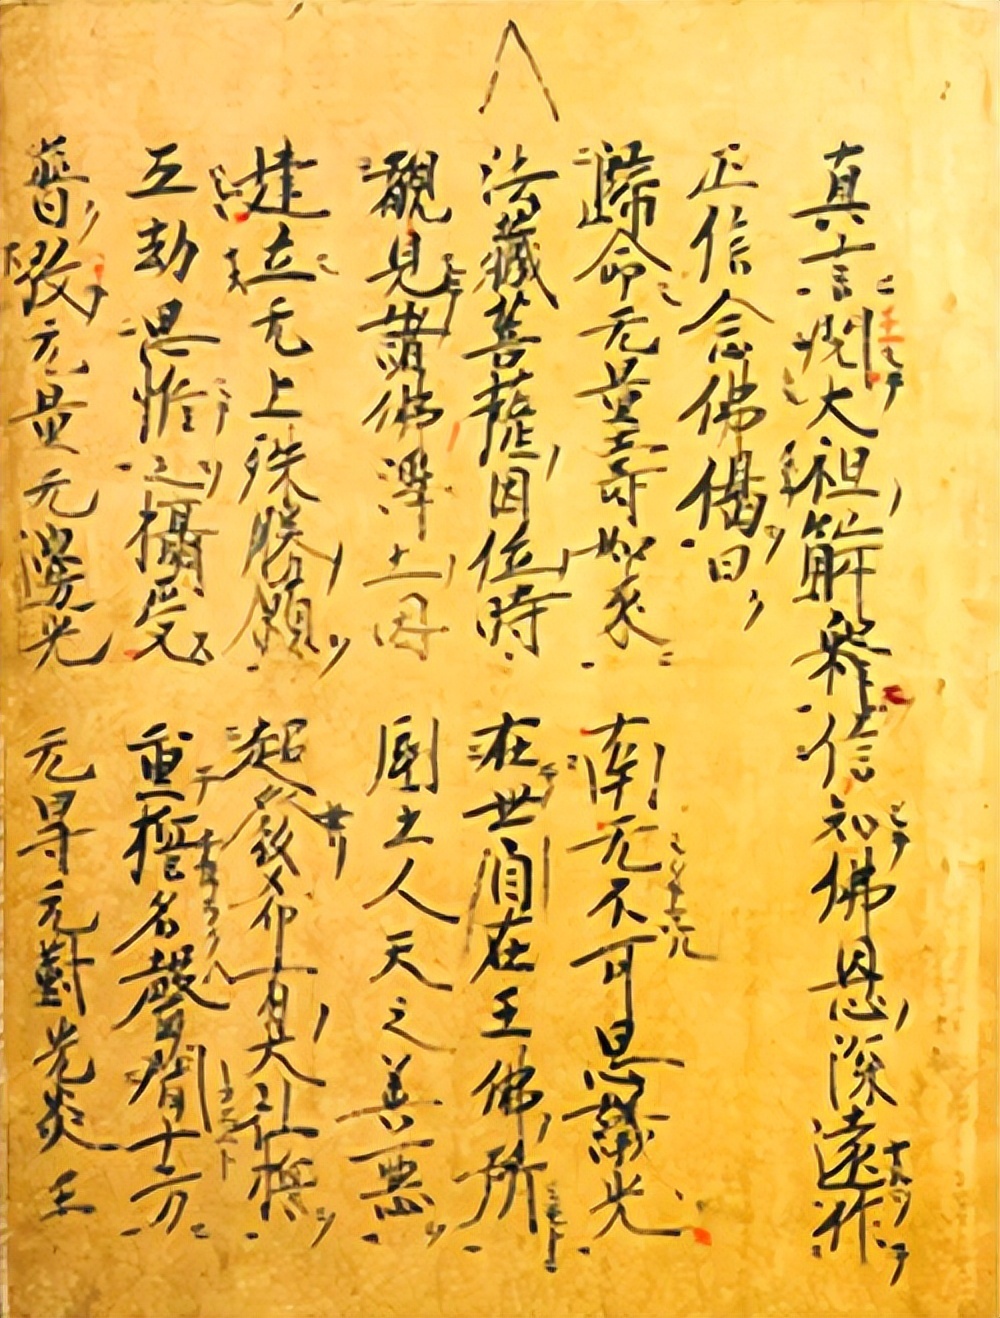 真言閲大祖解釋信知佛恩深遠作
正信念佛偈曰
歸命无量壽如來 南无不可思議光
法藏菩薩因位時 在世自在王佛所
覩見諸佛淨土因 國土人天之善惡
建立无上殊勝願 超發希有大弘誓
五劫思惟之攝受 重誓名聲聞十方
普放无量无邊光 无㝵无對光炎王